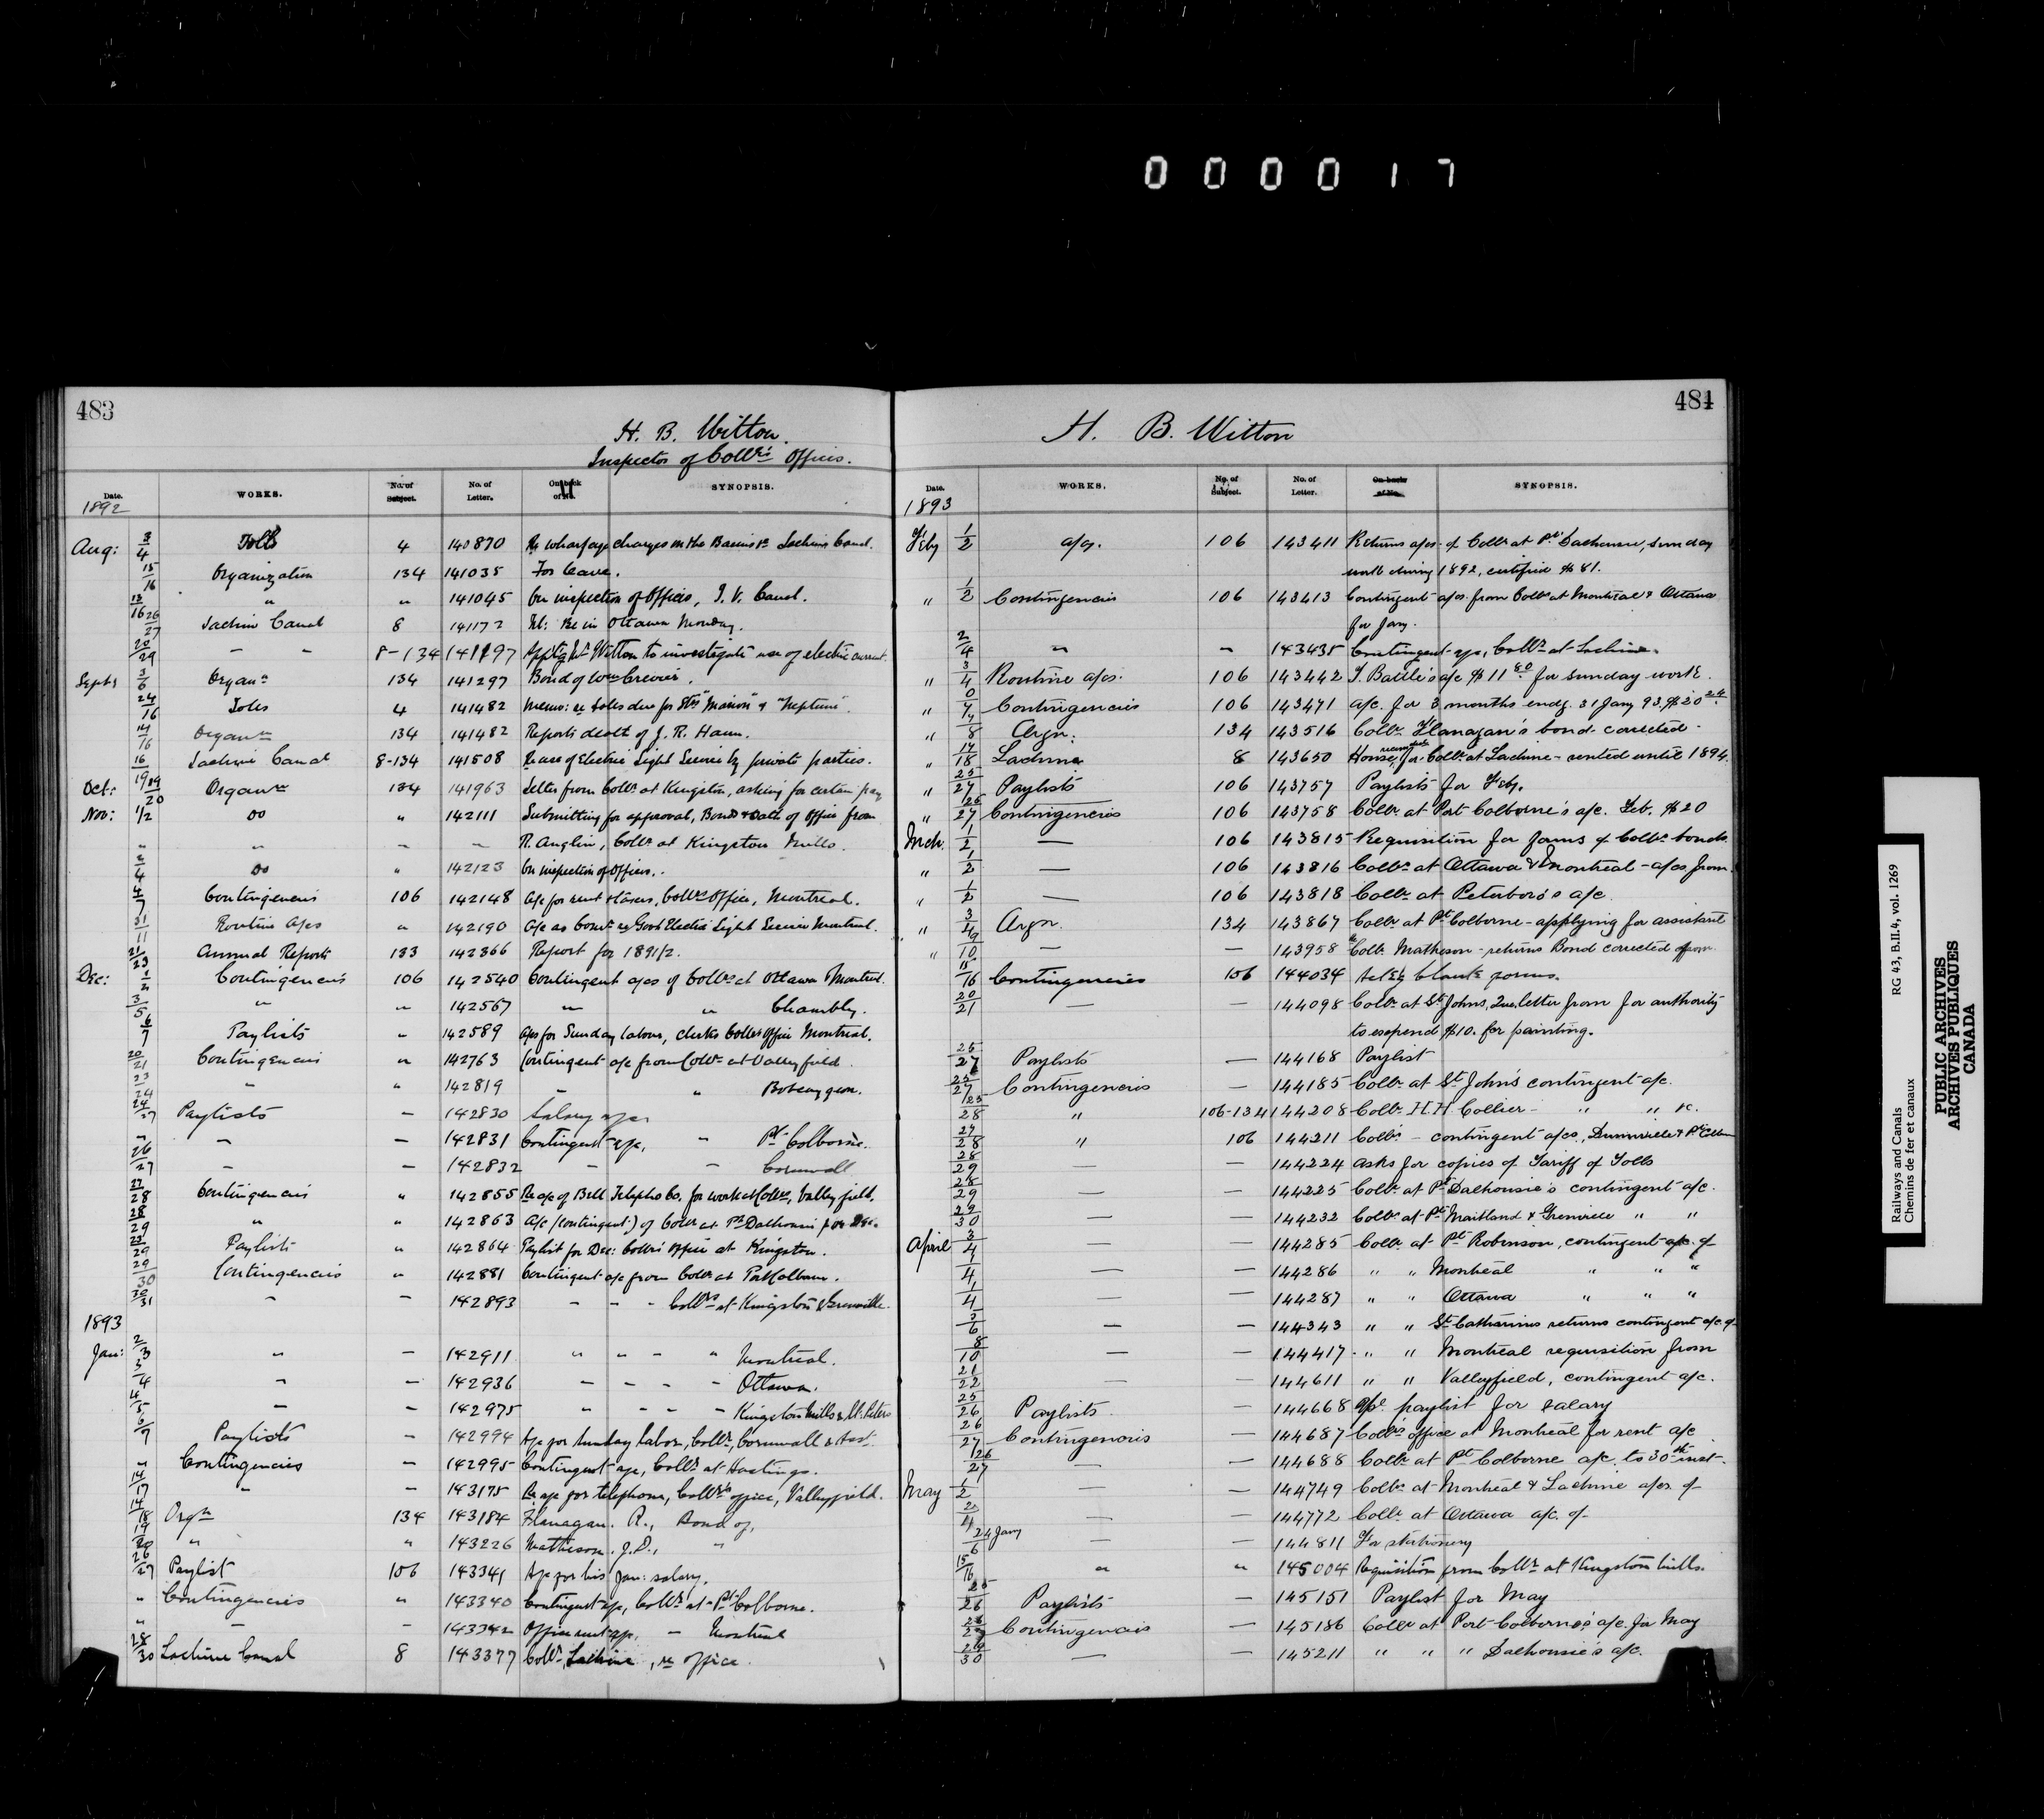 000017
483
H. B. Witton.
Inspector of Collrs Offices.
Date. WORKS. No. of Subject. No. of Letter. On back of No. SYNOPSIS.
1892
Aug: 3/4 Tolls 4 140870 Re wharfage charges on the Basins re Lachine Canal.
15/16 Organization 134 141035 For leave.
13/16 " " 141045 On inspection of Offices, T. V. Canal.
26/27 Lachine Canal 8 141172 Tel: Be in Ottawa Monday.
20/29 — - 8-134 141197 Witton to investigate use of electric current.
Septr 3/6 Organn 134 141297 Bond of Wm Crevier.
24/16 Tolls 4 141482 Memo: re tolls due for Strs "Marion" & "Neptune".
14/16 Organn 134 141482 Reports death of J. R. Haun.
16 Lachine Canal 8-134 141508 Re use of Electric Light Service by private parties.
Oct: 19/20 Organn 134 141963 Letter from Collr at Kingston, asking for certain pay
Nov: 1/2 Do " 142111 Submitting for approval, Bond & Oath of Office from
" " — — R. Anglin, Collr at Kingston Mills.
2/4 Do " 142123 On inspection of Offices.
4/7 Contingencies 106 142148 A/c for rent & taxes, Collrs Office, Montreal.
31/11 Routine A/cs " 142190 A/c as Comr re Govt Electric Light Service Montreal.
21/23 Annual Reports 133 142366 Report for 1891/2.
Dec: 1/2 Contingencies 106 142540 Contingent a/cs of Collrs at Ottawa Montreal.
3/5 " " 142567 " " Chambly.
6/7 Paylists " 142589 A/cs for Sunday labour, clerks Collrs Office Montreal.
20/21 Contingencies " 142763 Contingent a/c from Collr at Valleyfield.
23/24 " " 142819 — " Bobcaygeon.
24/27 Paylists — 142830 Salary a/c
" — — 142831 Contingent a/c, " Pt Colborne.
26/27 — — 142832 — — Cornwall
27/28 Contingencies " 142855 Re a/c of Bell Telepho Co. for work at Collrs, Valleyfield.
28/29 " " 142863 A/c (contingent) of Collr at Pt Dalhousie for Dec.
29 Paylists " 142864 Paylist for Dec: Collrs Office at Kingston.
29/30 Contingencies " 142881 Contingent a/c from Collr at Port Colborne.
30/31 " — 142893 — — - Collrs at Kingston & Grenville.
1893
Jan: 2/3 " — 142911 " " " " Montreal.
3/4 " — 142936 — — — — Ottawa.
4/5 — — 142975 " — — — Kingston Mills & St. Peters
6/7 Paylists — 142994 A/c for Sunday labor, Collr, Cornwall & Asst.
" Contingencies — 142995 Contingent a/c, Collr at Hastings.
14/17 " — 143175 Re a/c for telephone, Collrs office, Valleyfield.
14/18 Orgn 134 143184 Flanagan. R., Bond of,
19/20 " " 143226 Matheson. J.D., "
26/27 Paylist 106 143341 A/c for his Jan: salary.
" Contingencies " 143340 Contingent a/c, Collr at Pt Colborne.
" — — 143342 Office rent a/c, — Montreal
28/30 Lachine Canal 8 143377 Collr, Lachine, re office.
484
H. B. Witton
Date. WORKS. No. of Subject. No. of Letter. On back of No. SYNOPSIS.
1893
Feby 1/2 a/cs. 106 143411 Returns a/cs of Collr at Pt Dalhousie, Sunday
work during 1892, certified $81.
" 1/2 Contingencies 106 143413 Contingent a/cs from Collrs at Montreal & Ottawa
for Jany.
2/4 " " 143435 Contingent a/c, Collr at Lachine.
" 3/4 Routine a/cs. 106 143442 J. Battle's a/c $11 80 for Sunday work.
" Contingencies 106 143471 a/c. for 3 months endg. 31 Jany 93, $20 24.
" 7/8 Orgn. 134 143516 Collr Flanagan's bond corrected.
" 17/18 Lachine 8 143650 House for Collr at Lachine - rented until 1894.
" 25/27 Paylists 106 143757 Paylists for Feby.
" 25/27 Contingencies 106 143758 Collr at Port Colborne's a/c. Feb. $20
Mch. 1/2 — 106 143815 Requisition for forms of Collrs bonds.
" 1/2 — 106 143816 Collrs at Ottawa & Montreal - a/cs from
" 1/2 — 106 143818 Collr at Peterboro's a/c.
" 3/4 Orgn 134 143867 Collr at Pt Colborne - applying for assistant
" 9/10 — — 143958 Collr Matheson - returns Bond corrected from
15/16 Contingencies 106 144034 blank forms.
20/21 — — 144098 Collr at St Johns, Que, letter from for authority
to expend $10. for painting.
25/27 Paylists — 144168 Paylist
25/27 Contingencies — 144185 Collr at St John's contingent a/c.
25/28 " 106-134 144208 Collr H.H. Collier - " " rc.
27/28 " 106 144211 Collrs - contingent a/cs, Dunnville & Pt Colborne
28/29 — — 144224 asks for copies of Tariff of Tolls
28/29 — — 144225 Collr at Pt Dalhousie's contingent a/c.
29/30 — — 144232 Collrs at Pt Maitland & Grenville " "
April 3/4 — — 144285 Collr at Pt Robinson, contingent a/c of
1/4 — — 144286 " " Montreal " " "
1/4 — — 144287 " " Ottawa " " "
5/6 — — 144343 " " St Catharines returns contingent a/c of
8/10 — — 144417 " " Montreal requisition from
21/22 — — 144611 " " Valleyfield, contingent a/c.
25/26 Paylists — 144668 paylist for salary
26/27 Contingencies — 144687 Collrs office at Montreal for rent a/c
26/27 — — 144688 Collr at Pt Colborne a/c. to 30th inst.
May 1/2 — — 144749 Collrs at Montreal & Lachine a/cs of
2/4 — — 144772 Collr at Ottawa a/c. of
24 Jany/6 — — 144811 For stationery
15/16 " " 145004 Requisition from Collr at Kingston Mills.
25/26 Paylists — 145151 Paylist for May
Contingencies — 145186 Collr at Port Colborne's a/c. for May
29/30 — — 145211 " " " Dalhousie's a/c.
Railways and Canals RG 43, B.II.4, vol. 1269
Chemins de fer et canaux
PUBLIC ARCHIVES
ARCHIVES PUBLIQUES
CANADA